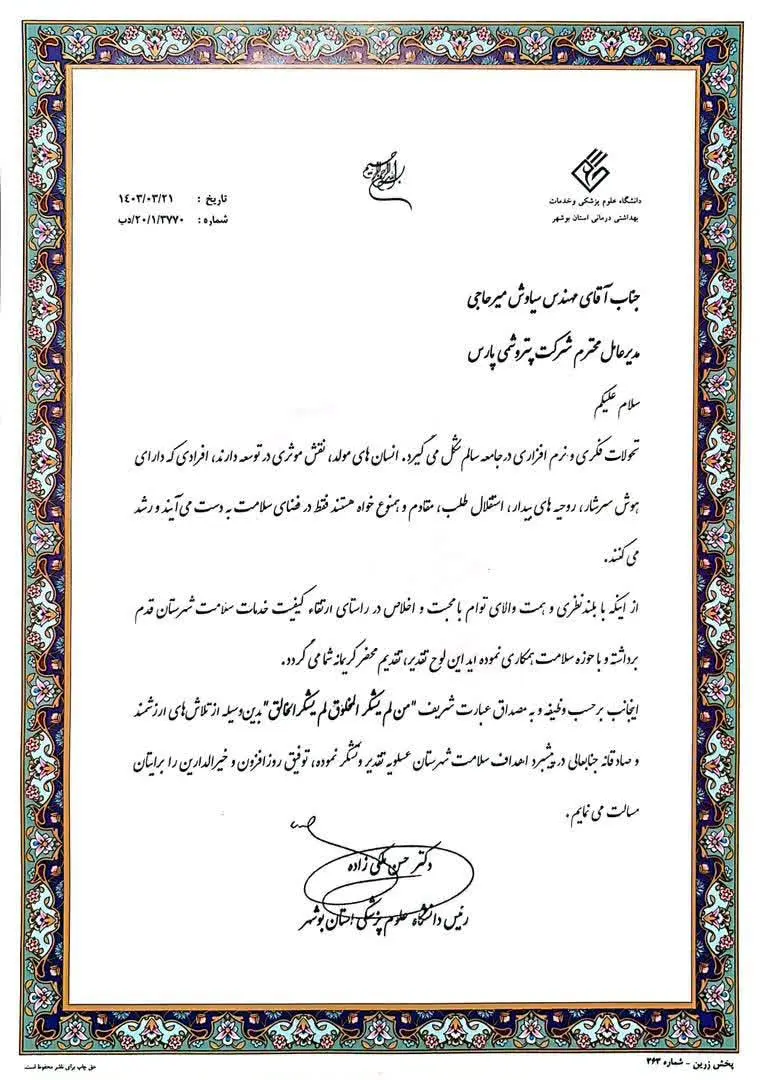 بسم الله الرحمن الرحیم
دانشگاه علوم پزشکی وخدمات
بهداشتی درمانی استان بوشهر
تاریخ : ۱۴۰۳/۰۳/۲۱
شماره : ۲۰/۱/۳۷۷۰/دب
جناب آقای مهندس سیاوش میرحاجی
مدیرعامل محترم شرکت پتروشیمی پارس
سلام علیکم
تحولات فکری و نرم افزاری در جامعه سالم شکل می گیرد. انسان های مولد، نقش موثری در توسعه دارند، افرادی که دارای
هوش سرشار، روحیه های بیدار، استقلال طلب، مقادم و همنوع خواه هستند فقط در فضای سلامت به دست می آیند و رشد
می کنند.
از اینکه با بلندنظری و همت والای توام با محبت و اخلاص در راستای ارتقاء کیفیت خدمات سلامت شهرستان قدم
برداشته و با حوزه سلامت همکاری نموده اید این لوح تقدیر، تقدیم محضر کریمانه شما می گردد.
اینجانب برحسب وظیفه و به مصداق عبارت شریف "من لم یشکر المخلوق لم یشکر الخالق" بدین وسیله از تلاش های ارزشمند
و صادقانه جنابعالی در پیشبرد اهداف سلامت شهرستان عسلویه تقدیر و تشکر نموده، توفیق روزافزون و خیرالدارین را برایتان
مسالت می نمایم.
دکتر حسن ملکی زاده
رئیس دانشگاه علوم پزشکی استان بوشهر
پخش زرین - شماره ۲۶۳
حق چاپ برای ناشر محفوظ است.